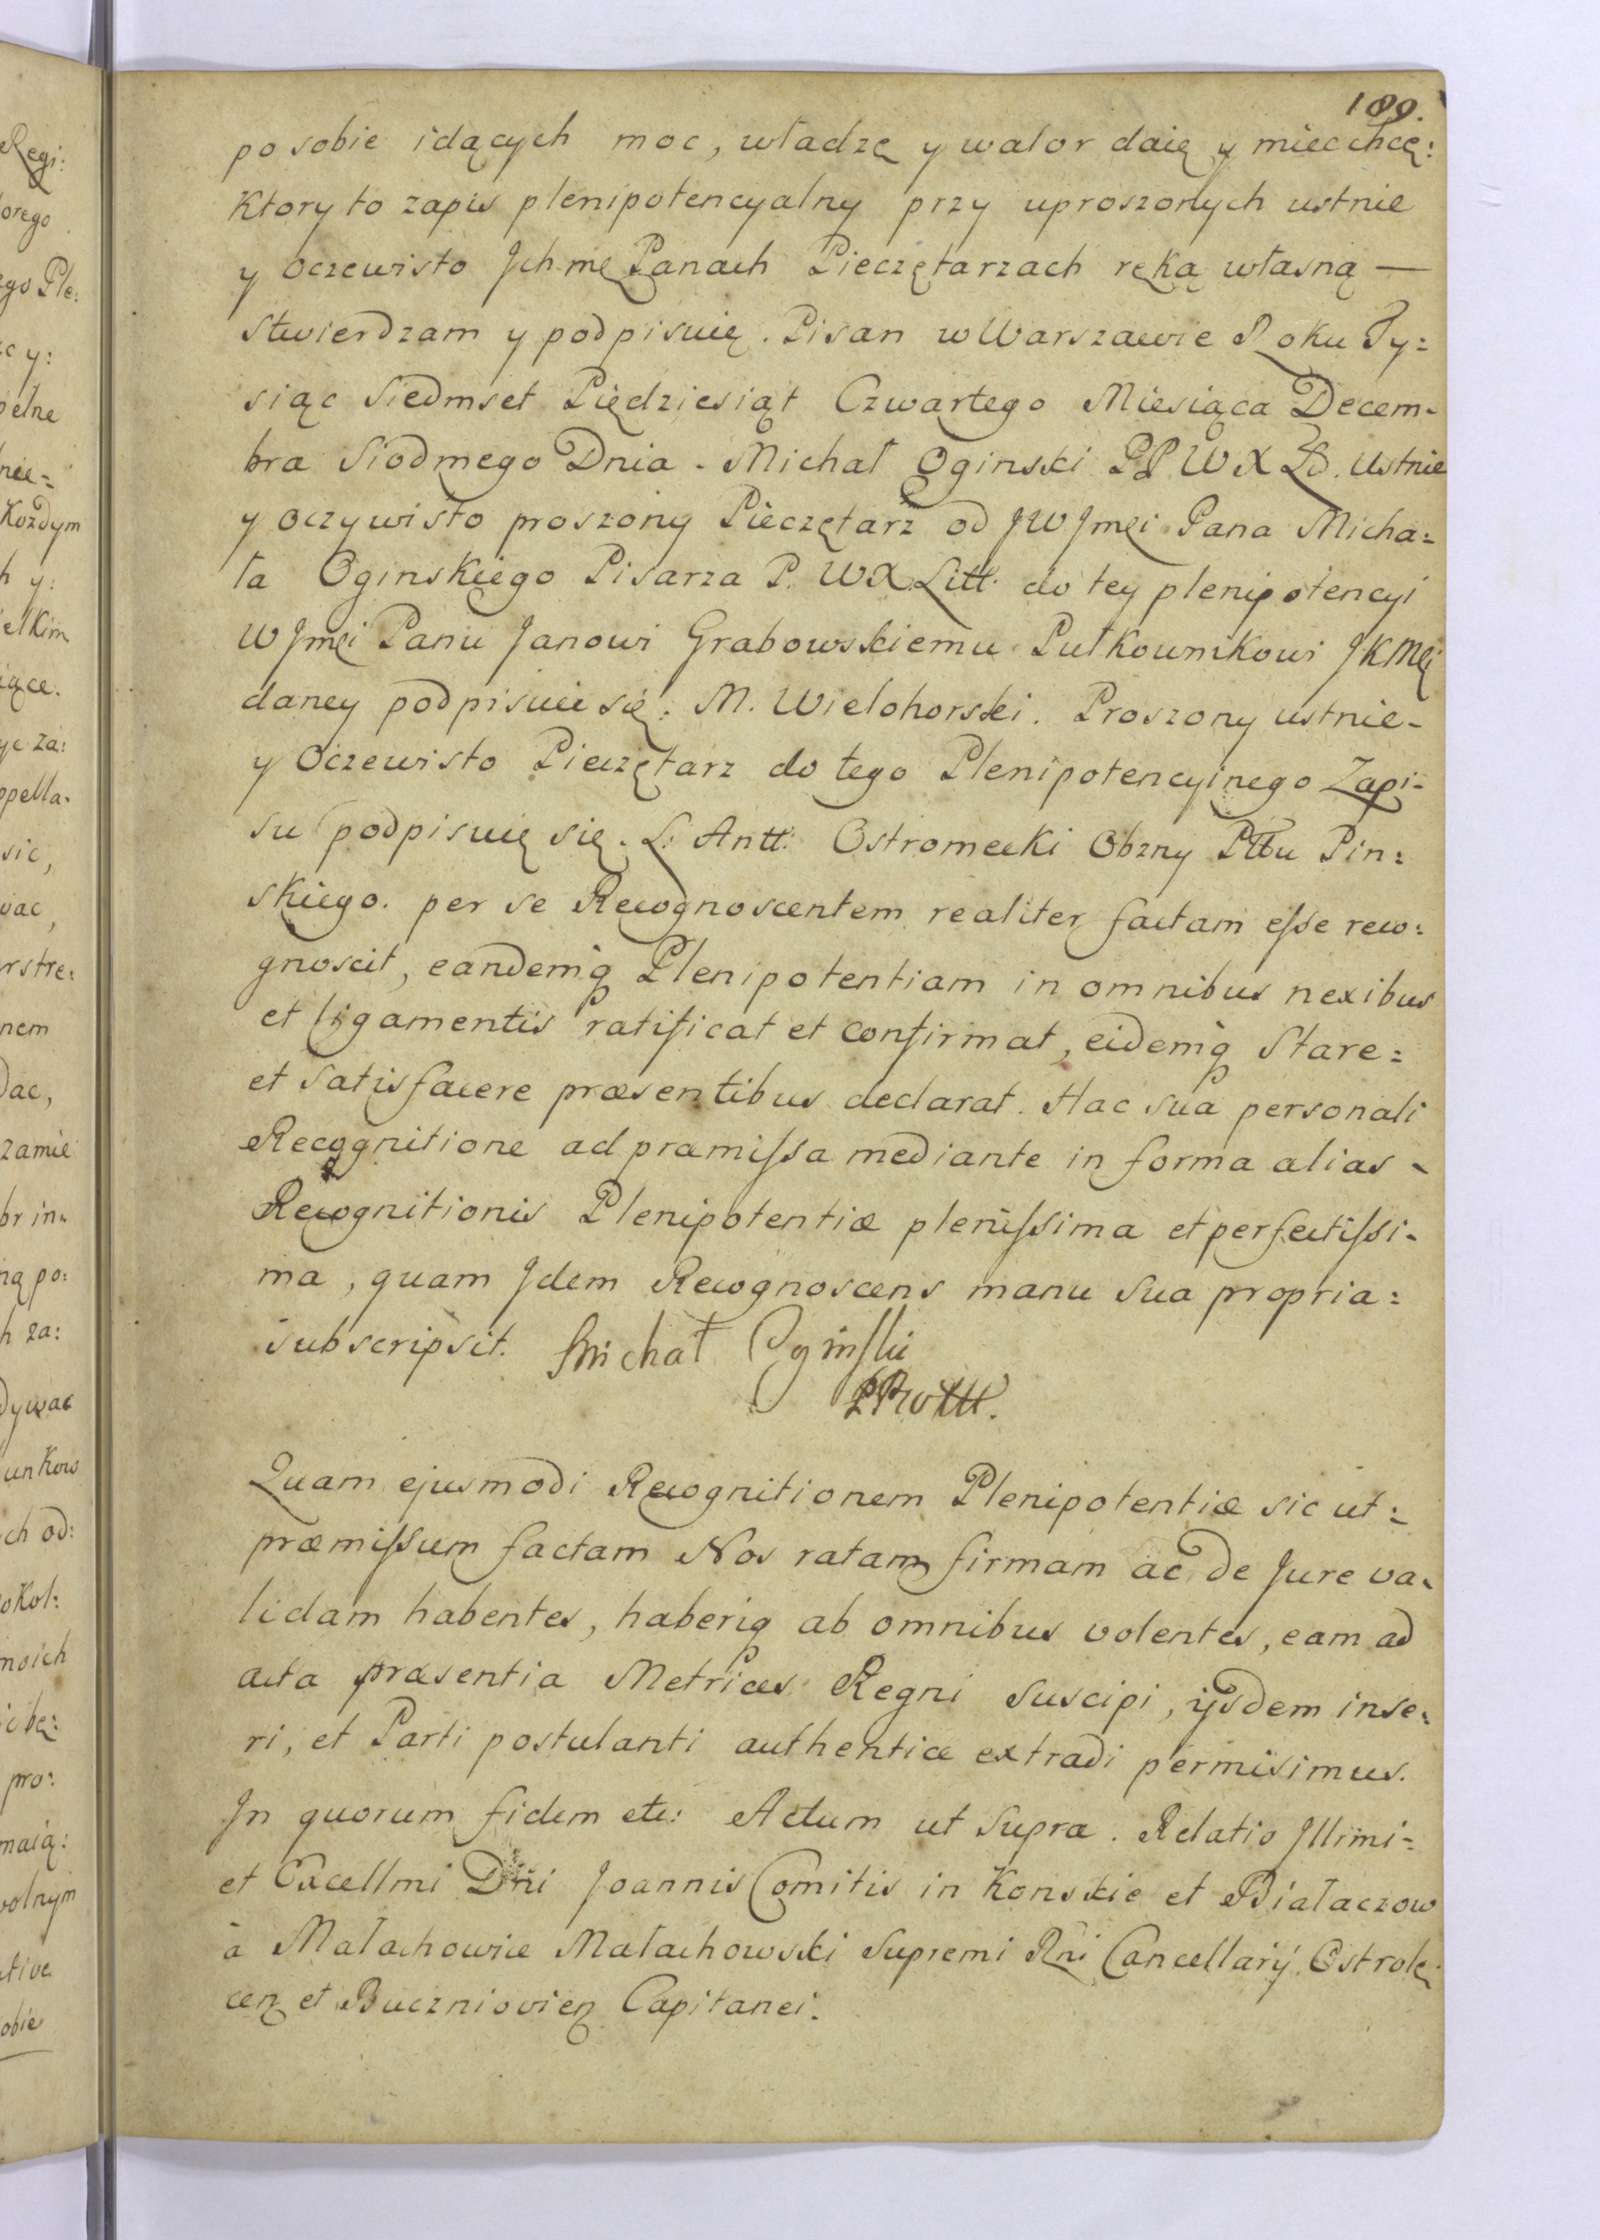 189.
po sobie idących moc, władzę y walor daię y mieć chcę:
Ktory to zapis plenipotencyalny przy uproszonych ustnie
y oczewisto Jchmę Panach Pieczętarzach ręką własną —
stwierdzam y podpisuię. Pisan w Warszawie Roku Ty=
siąc Siedmset Pięćdziesiąt Czwartego Miesiąca Decem-
bra Siodmego Dnia. Michał Oginski P.P. W X L. Ustnie
y oczywisto proszony Pieczętarz od JW Jmći Pana Micha=
ła Oginskiego Pisarza P. WX Litt. do tey plenipotencyi
W Jmći Panu Janowi Grabowskiemu Pułkownikowi JKMći
daney podpisuię się: M. Wielohorski. Proszony ustnie-
y Oczewisto Pieczętarz do tego Plenipotencyinego Zapi-
su podpisuię się. L: Antt: Ostromecki Obzny Pttu Pin:
skiego. per se Recognoscentem realiter factam esse reco:
gnoscit, eandemq Plenipotentiam in omnibus nexibus
et ligamentis ratificat et confirmat, eidemq Stare=
et satisfacere præsentibus declarat. Hac sua personali
Recognitione ad præmissa mediante in forma alias-
Recognitionis Plenipotentiæ plenissima et perfectissi-
ma, quam Jdem Recognoscens manu sua propria=
subscripsit. Michał Oginski
PPWXLitt.
Quam ejusmodi Recognitionem Plenipotentiæ sic ut=
præmissum factam Nos ratam firmam ac de Jure va-
lidam habentes, haberiq ab omnibus volentes, eam ad
acta præsentia Metrices Regni suscipi, ijsdem inse-
ri, et Parti postulanti authentice extradi permisimus.
Jn quorum fidem etc: Actum ut supra. Relatio Jllrmi=
et Excellmi Dni Joannis Comitis in Konskie et Białaczow
à Małachowice Małachowski Supremi Rni Cancellarij Ostrolę
cen et Buczniovien Capitanei.